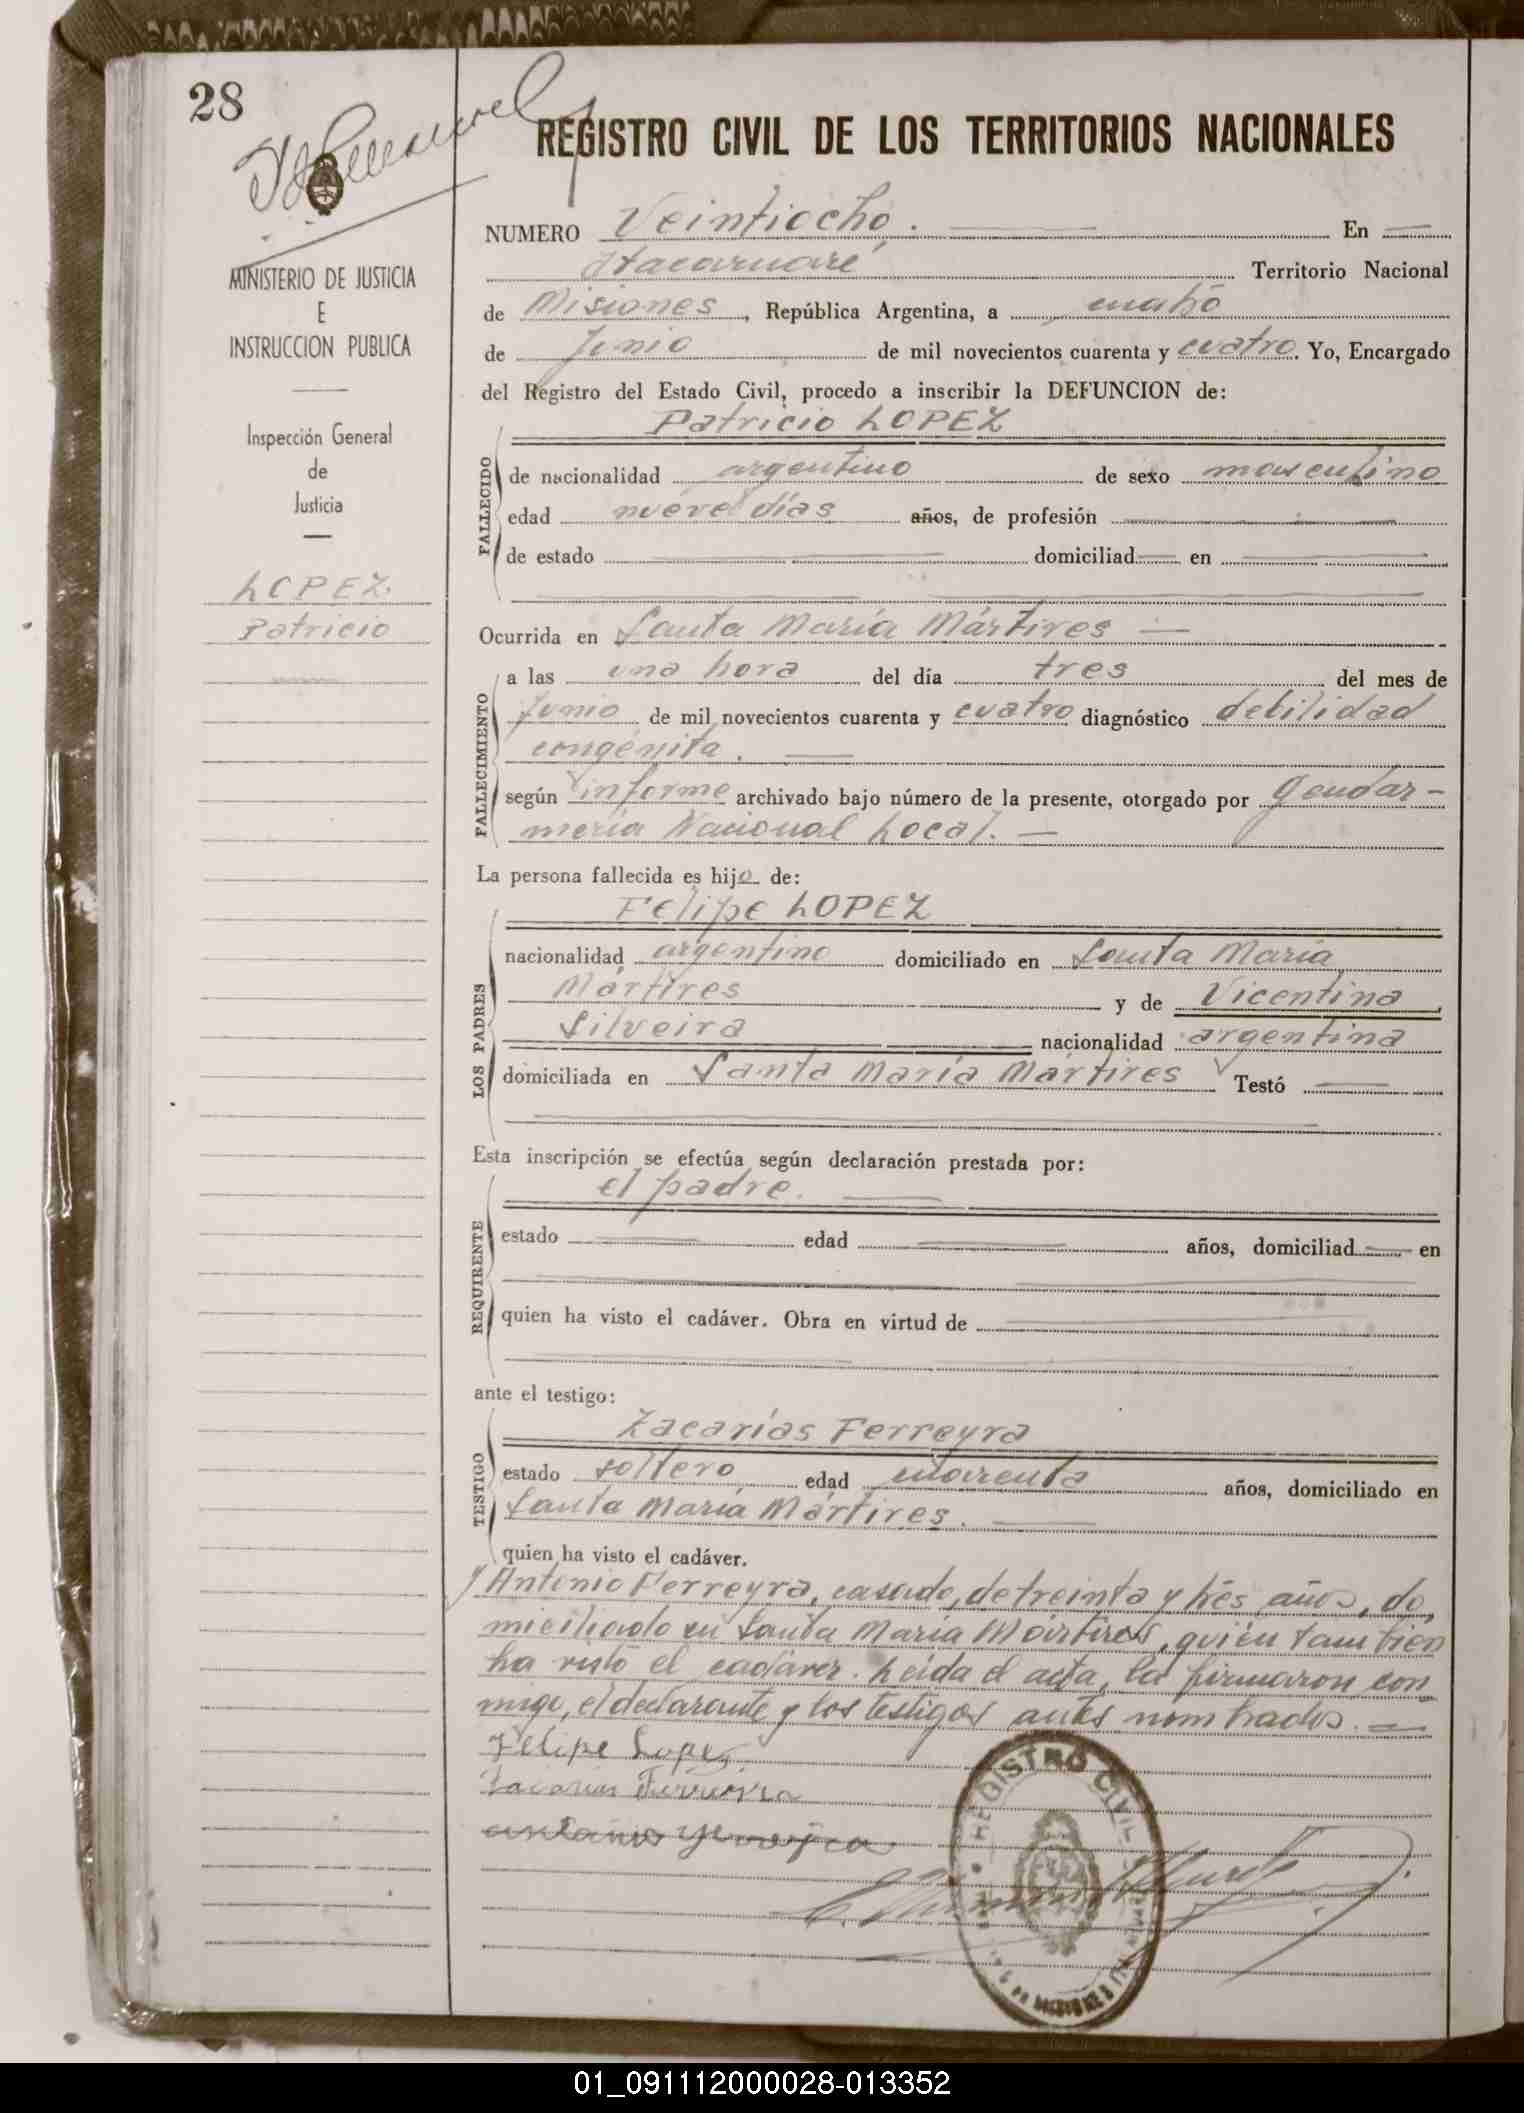 28
REGISTRO CIVIL DE LOS TERRITORIOS NACIONALES
MINISTERIO DE JUSTICIA
E
INSTRUCCION PUBLICA
Inspección General
de
Justicia
LOPEZ.
Patricio
NUMERO Veintiocho. En
Itacaruaré Territorio Nacional
de Misiones, República Argentina, a cuatro
de Junio de mil novecientos cuarenta y cuatro. Yo, Encargado
del Registro del Estado Civil, procedo a inscribir la DEFUNCION de:
Patricio LOPEZ
FALLECIDO
de nacionalidad argentino de sexo masculino
edad nueve días años, de profesión
de estado domiciliad en
Ocurrida en Santa María Mártires
FALLECIMIENTO
a las una hora del día tres del mes de
Junio de mil novecientos cuarenta y cuatro diagnóstico debilidad
congénita.
según informe archivado bajo número de la presente, otorgado por Gendar-
mería Nacional Local.
La persona fallecida es hijo de:
Felipe LOPEZ
LOS PADRES
nacionalidad argentino domiciliado en Santa María
Mártires y de Vicentina
Silveira nacionalidad argentina
domiciliada en Santa María Mártires Testó
Esta inscripción se efectúa según declaración prestada por:
el padre.
REQUIRENTE
estado edad años, domiciliad en
quien ha visto el cadáver. Obra en virtud de
ante el testigo:
Zacarías Ferreyra
TESTIGO
estado soltero edad cuarenta años, domiciliado en
Santa María Mártires.
quien ha visto el cadáver.
y Antonio Ferreyra, casado, de treinta y trés años, do
miciliado en Santa María Mártires, quién tambien
ha visto el cadáver. Leída el acta, la firmaron con
migo, el declarante y los testigos antes nombrados.
Felipe Lopez
Zacarias Ferreira
REGISTRO CIVIL
01_091112000028-013352